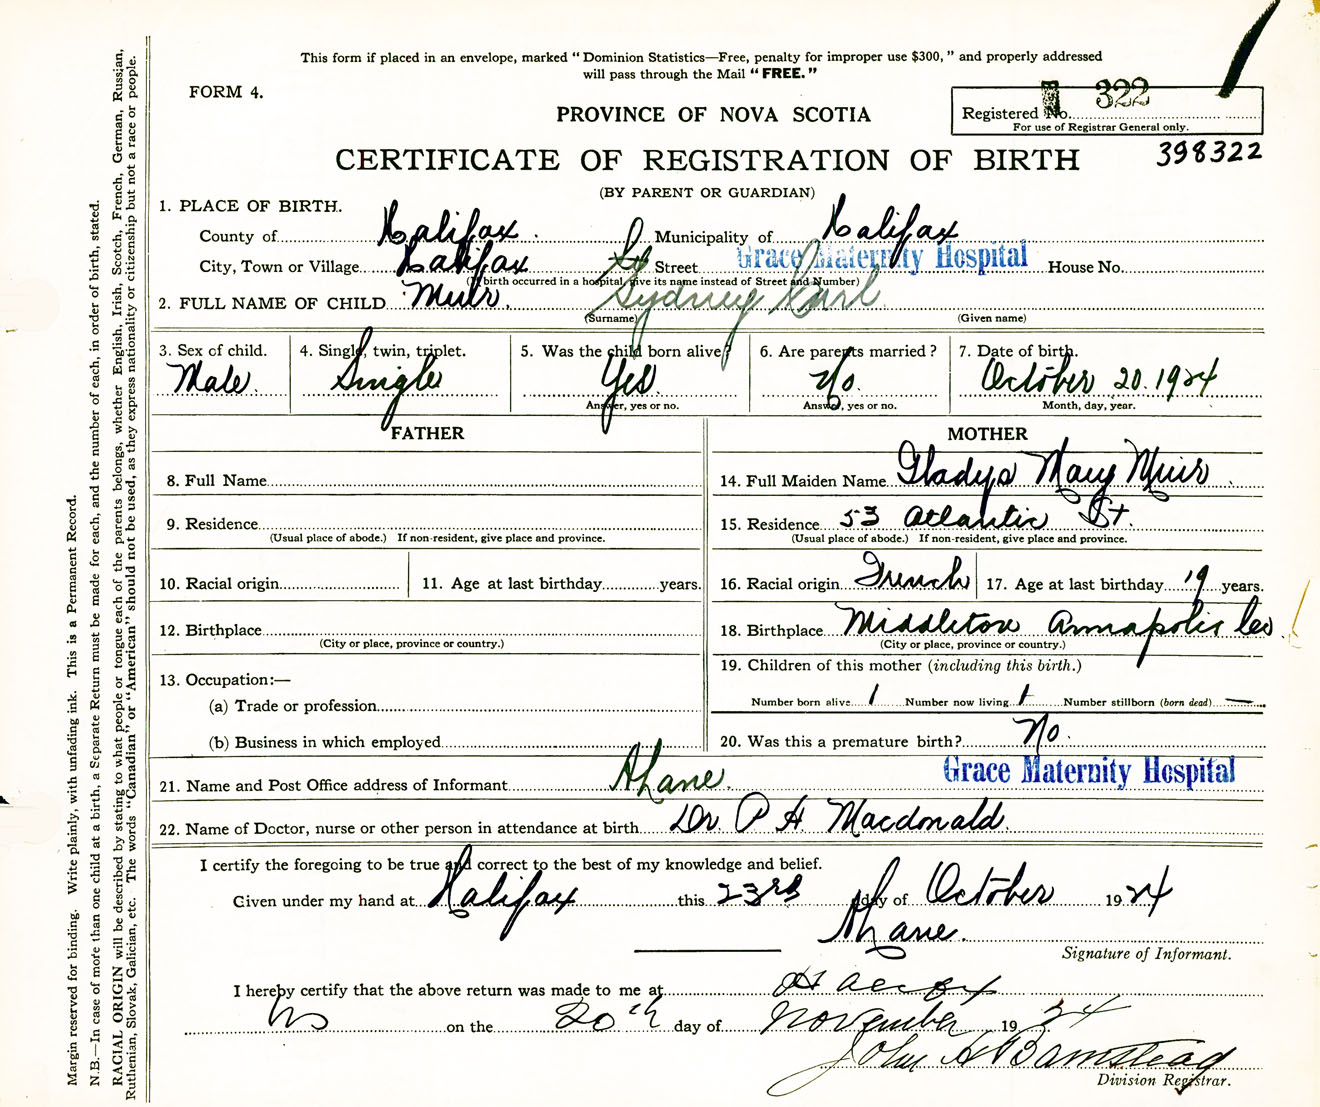 This form if placed in an envelope, marked “Dominion Statistics—Free, penalty for improper use $300,” and properly addressed
will pass through the Mail “FREE.”
FORM 4.
PROVINCE OF NOVA SCOTIA
Registered No. 322
For use of Registrar General only.
CERTIFICATE OF REGISTRATION OF BIRTH
398322
(BY PARENT OR GUARDIAN)
1. PLACE OF BIRTH.
County of Halifax. Municipality of Halifax
City, Town or Village Halifax Street Grace Maternity Hospital House No.
(If birth occurred in a hospital, give its name instead of Street and Number)
2. FULL NAME OF CHILD Muir, Sydney Carl
(Surname) (Given name)
3. Sex of child. 4. Single, twin, triplet. 5. Was the child born alive? 6. Are parents married? 7. Date of birth.
Male. Single Yes No. October 20. 1924
Answer, yes or no. Answer, yes or no. Month, day, year.
FATHER MOTHER
8. Full Name 14. Full Maiden Name Gladys Mary Muir
9. Residence 15. Residence 53 Atlantic St.
(Usual place of abode.) If non-resident, give place and province. (Usual place of abode.) If non-resident, give place and province.
10. Racial origin 11. Age at last birthday years. 16. Racial origin French 17. Age at last birthday 19 years.
12. Birthplace 18. Birthplace Middleton Annapolis Co
(City or place, province or country.) (City or place, province or country.)
13. Occupation:— 19. Children of this mother (including this birth.)
(a) Trade or profession Number born alive 1 Number now living 1 Number stillborn (born dead) —
(b) Business in which employed 20. Was this a premature birth? No.
21. Name and Post Office address of Informant A Lane. Grace Maternity Hospital
22. Name of Doctor, nurse or other person in attendance at birth Dr. P H Macdonald.
I certify the foregoing to be true and correct to the best of my knowledge and belief.
Given under my hand at Halifax this 23rd day of October 1924
A Lane.
Signature of Informant.
I hereby certify that the above return was made to me at Halifax
NS on the 20th day of November 1924
John A Barnstead
Division Registrar.
Margin reserved for binding. Write plainly, with unfading ink. This is a Permanent Record.
N.B.—In case of more than one child at a birth, a Separate Return must be made for each, and the number of each, in order of birth, stated.
RACIAL ORIGIN will be described by stating to what people or tongue each of the parents belongs, whether English, Irish, Scotch, French, German, Russian,
Ruthenian, Slovak, Galician, etc. The words “Canadian” or “American” should not be used, as they express nationality or citizenship but not a race or people.